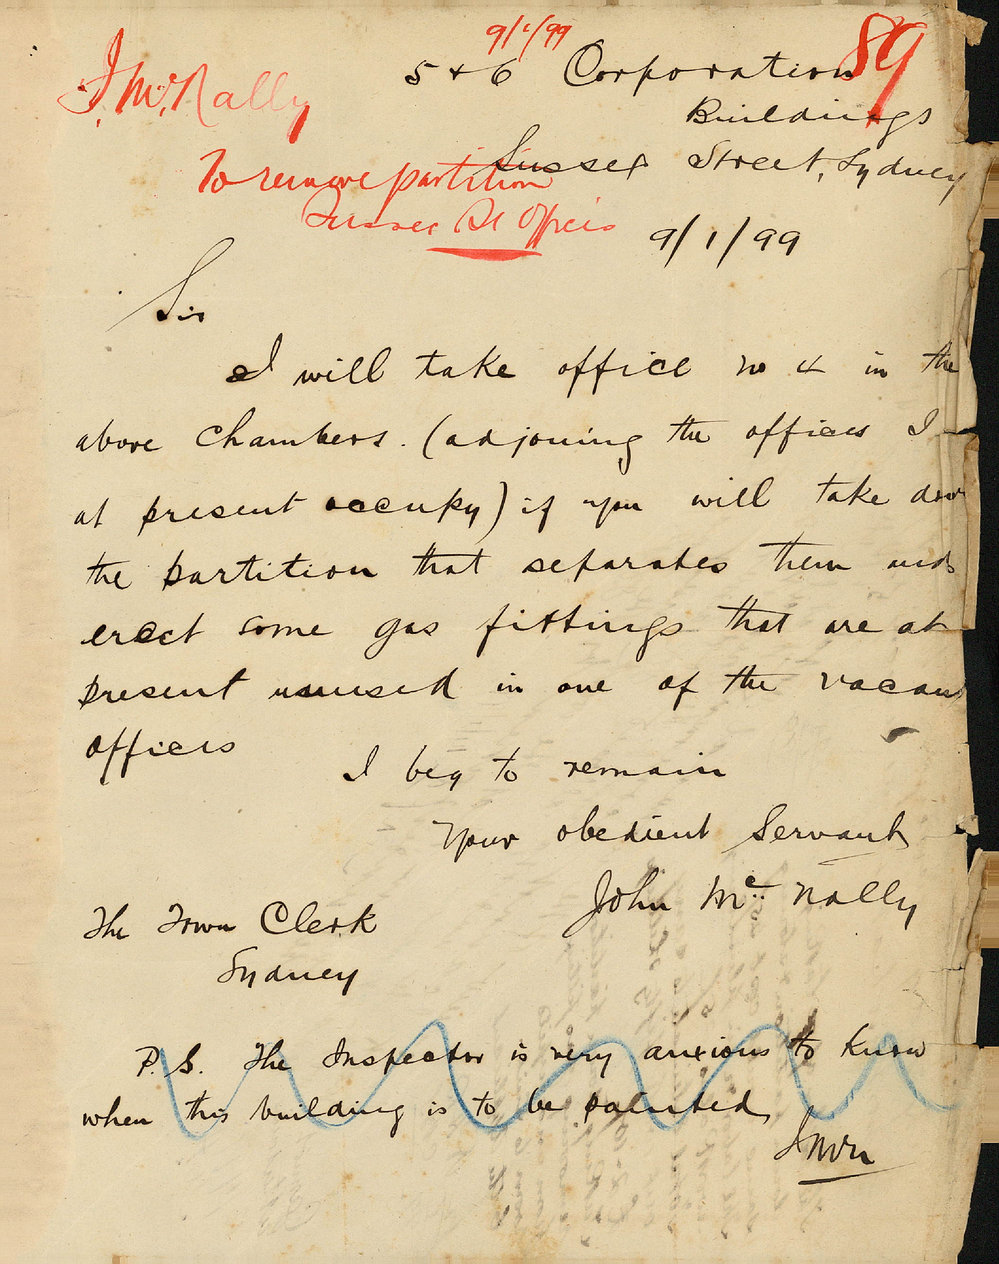 9/1/99
89
J. McNally
5 & 6 Corporation
Buildings
To remove partition
Sussex Street, Sydney
Sussex St Offices
9/1/99
Sir
I will take office no 4 in the
above Chambers. (adjoining the offices I
at present occupy) if you will take down
the partition that separates them and
erect some gas fittings that are at
present unused in one of the vacant
offices
I beg to remain
Your obedient Servant
John McNally
The Town Clerk
Sydney
P.S. The Inspector is very anxious to know
when this building is to be painted
J McN